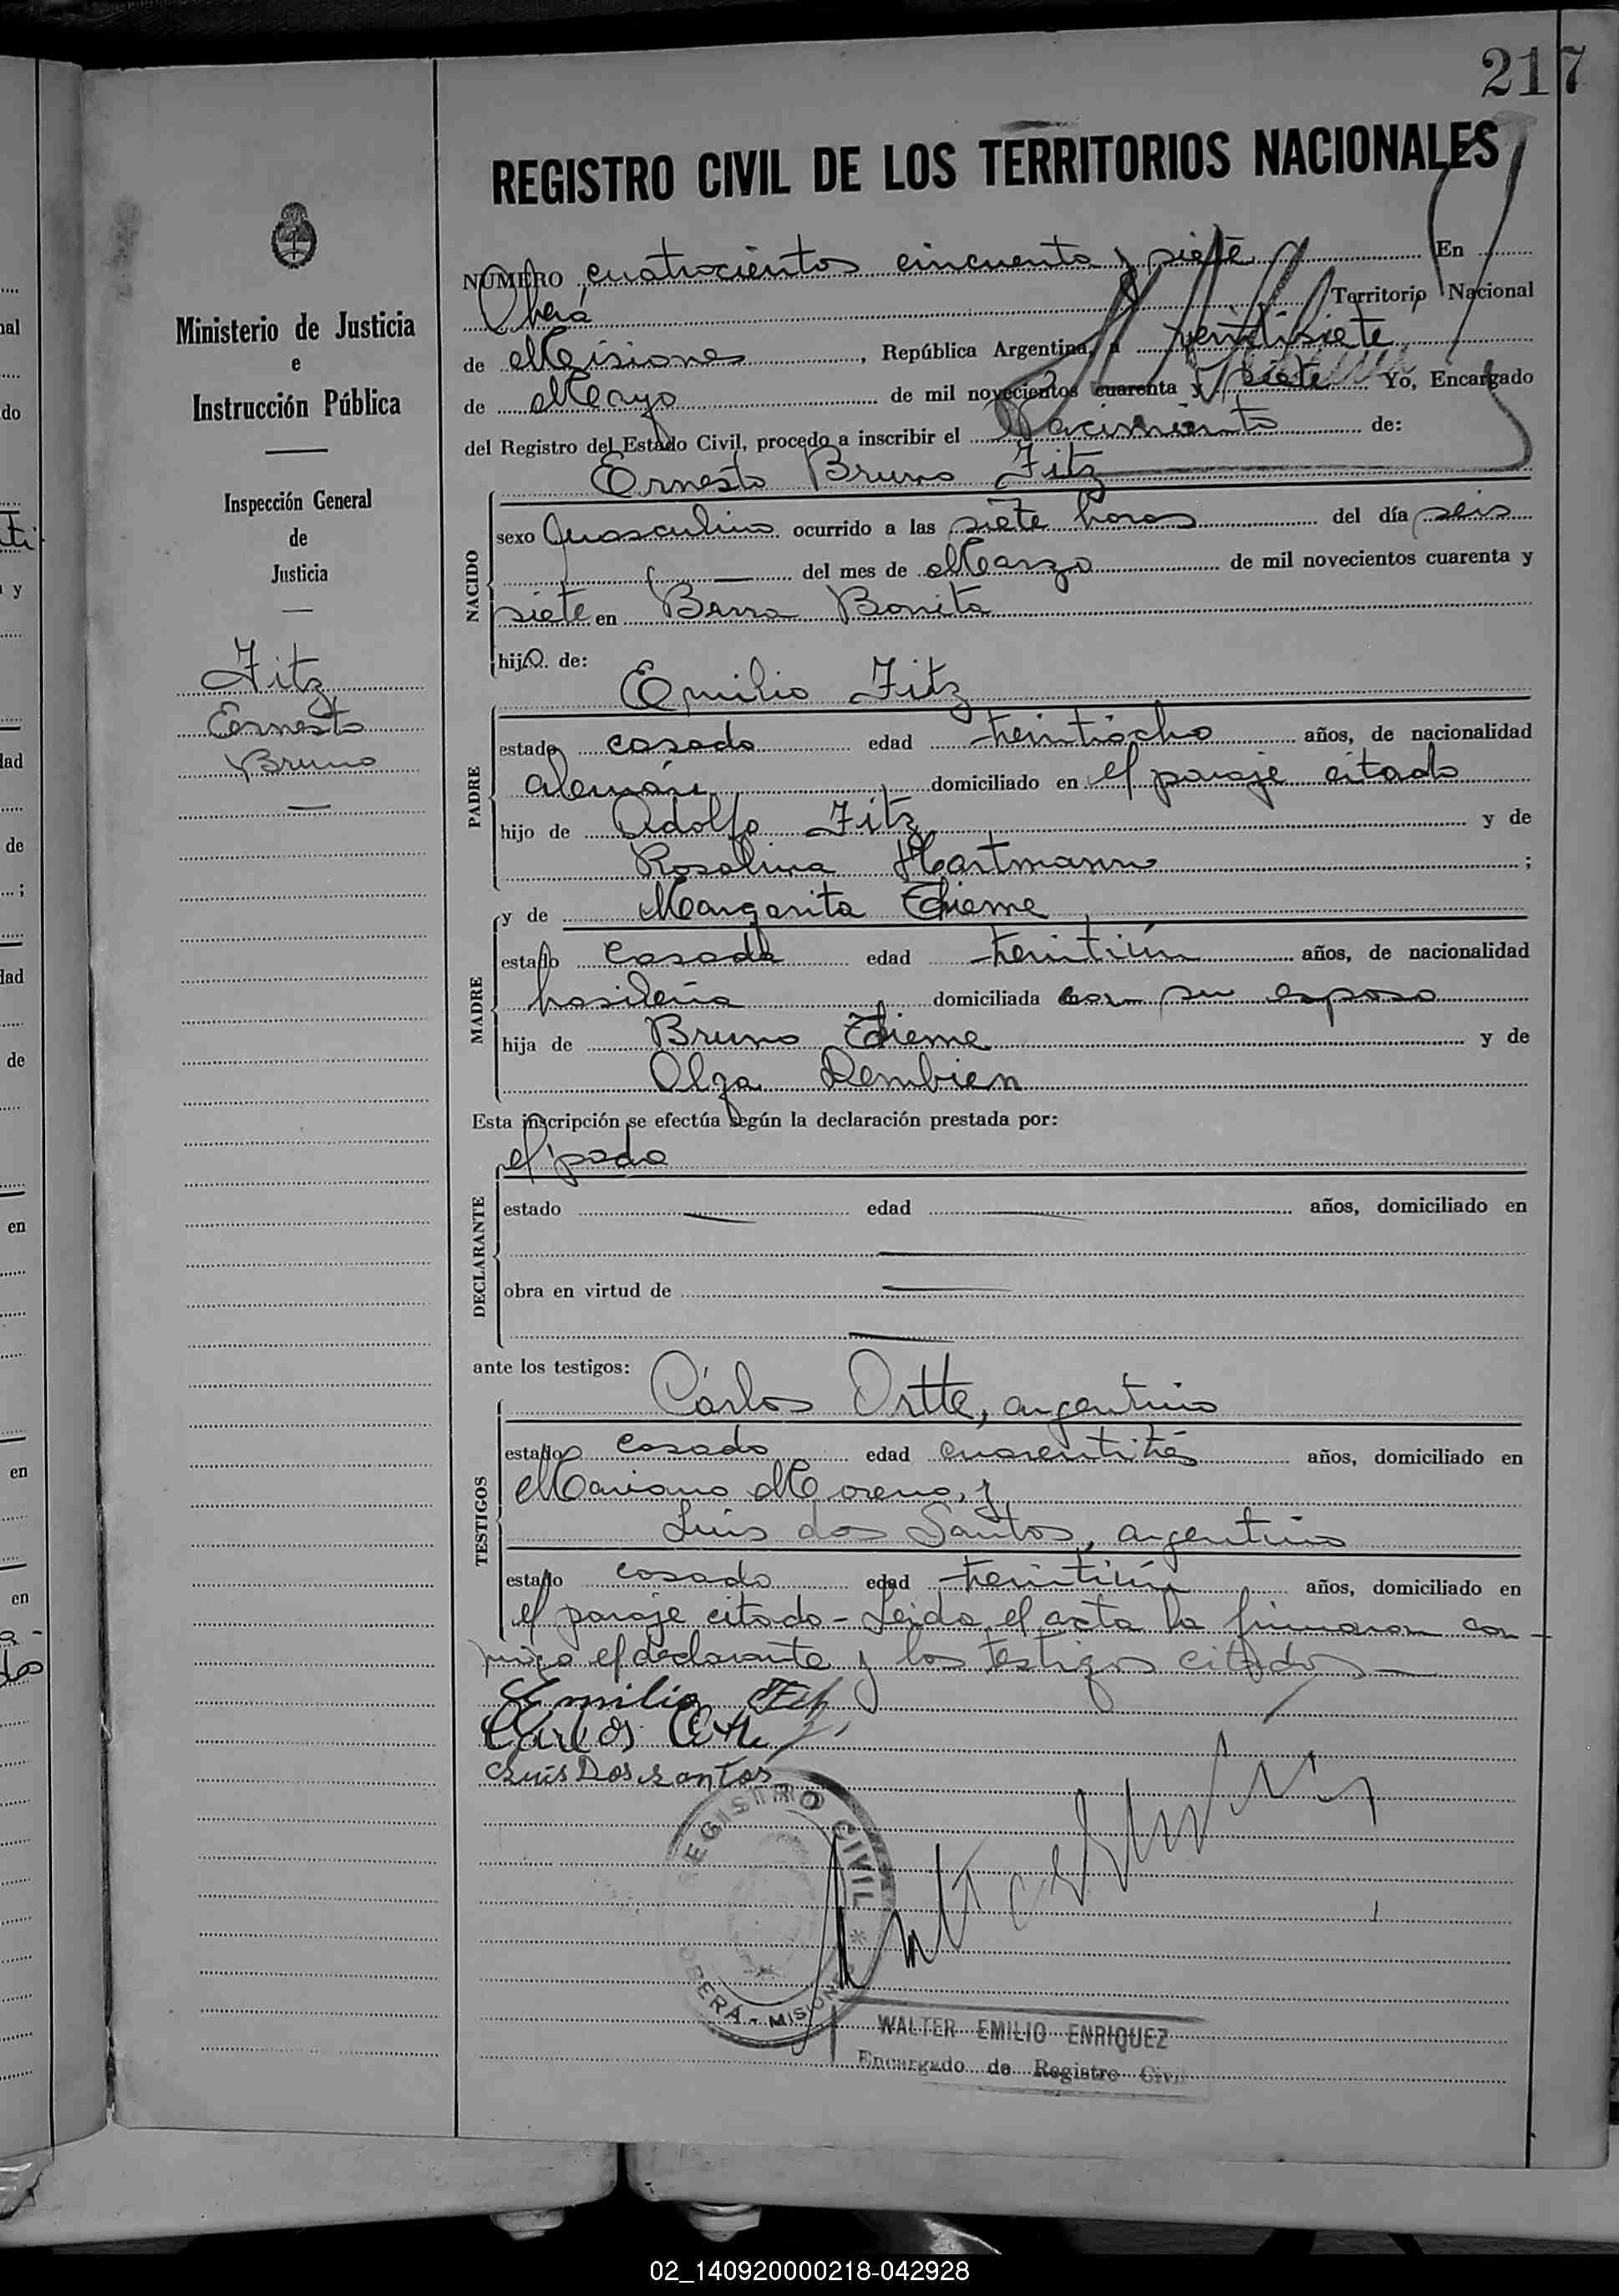 217
REGISTRO CIVIL DE LOS TERRITORIOS NACIONALES
Ministerio de Justicia
e
Instrucción Pública
Inspección General
de
Justicia
Fitz
Ernesto
Bruno
NÚMERO cuatrocientos cincuenta y siete En
Oberá Territorio Nacional
de Misiones, República Argentina, a veintisiete
de Mayo de mil novecientos cuarenta y siete Yo, Encargado
del Registro del Estado Civil, procedo a inscribir el Nacimiento de:
Ernesto Bruno Fitz
NACIDO
sexo masculino ocurrido a las siete horas del día seis
del mes de Marzo de mil novecientos cuarenta y
siete en Barra Bonita
hijo de:
Emilio Fitz
PADRE
estado casado edad treintiocho años, de nacionalidad
alemán domiciliado en el paraje citado
hijo de Adolfo Fitz y de
Rosalina Hartmann ;
y de Margarita Thieme
MADRE
estado casada edad treintiún años, de nacionalidad
brasileña domiciliada con su esposo
hija de Bruno Thieme y de
Olga Dembien
Esta inscripción se efectúa según la declaración prestada por:
el padre
DECLARANTE
estado edad años, domiciliado en
obra en virtud de
ante los testigos:
Cárlos Ortte, argentino
TESTIGOS
estado casado edad cuarentitrés años, domiciliado en
Mariano Moreno, y
Luis dos Santos, argentino
estado casado edad treintiún años, domiciliado en
el paraje citado - Leida el acta la firmaron con-
migo el declarante y los testigos citados -
Emilio Fitz
Carlos
Luis Dos santos
REGISTRO CIVIL
OBERÁ - MISIONES
WALTER EMILIO ENRIQUEZ
Encargado de Registro Civil
02_140920000218-042928